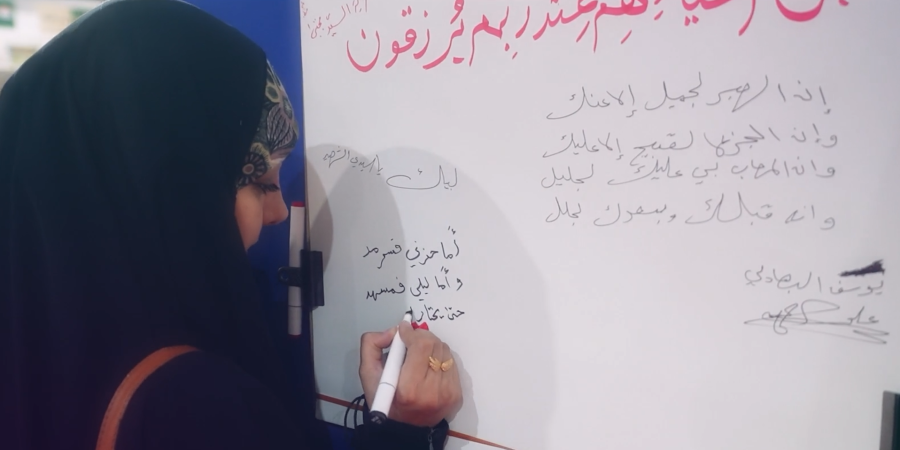 عند ربهم يرزقون
إن الصبر لجميل إلا عنك
وإن الجزع لقبيح إلا عليك
وان المصاب بي عليك لجليل
وانه قبلك وبعدك لجلل
يوسف البهادلي
لبيك
أما حزني فسرمد
وأما ليلي فمسهد
حتى يختار